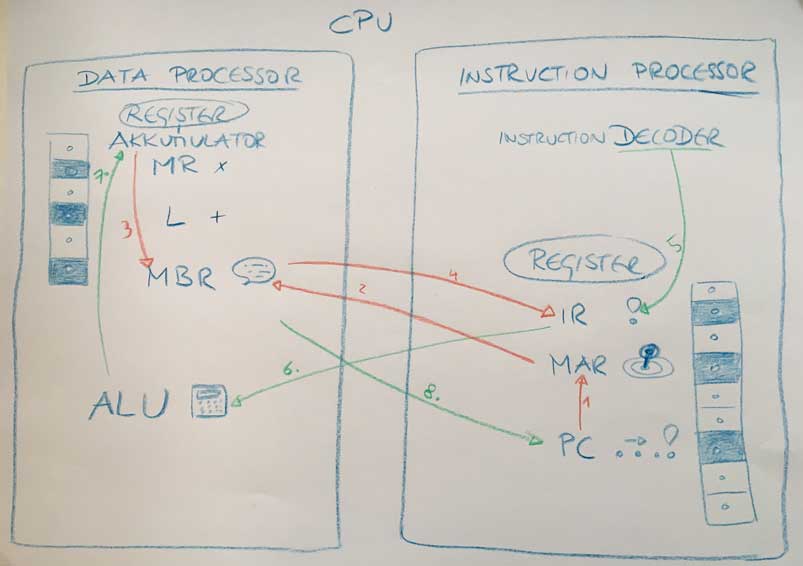 CPU
DATA PROCESSOR
REGISTER
AKKUMULATOR
MR x
L +
MBR
ALU
7.
3
INSTRUCTION PROCESSOR
INSTRUCTION DECODER
REGISTER
IR !
MAR
PC → . . . !
4
2
5
6.
8.
1